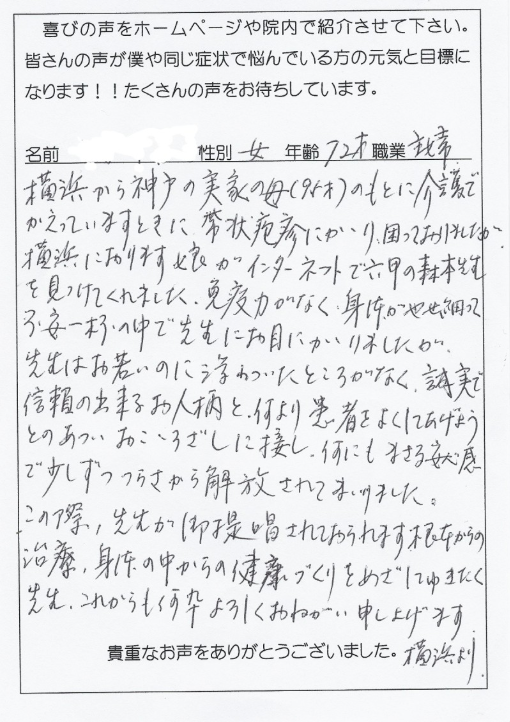 喜びの声をホームページや院内で紹介させて下さい。
皆さんの声が僕や同じ症状で悩んでいる方の元気と目標に
なります！！たくさんの声をお待ちしています。
名前 性別 女 年齢 72才 職業 主婦
横浜から神戸の実家の母(95才)のもとに介護で
かえっていますときに、帯状疱疹にかかり、困っておりましたが
横浜におります娘がインターネットで六甲の森本先生
を見つけてくれました、免疫力がなく、身体がやせ細って
不安一杯の中で先生にお目にかかりましたが、
先生はお若いのに浮わついたところがなく、誠実で
信頼の出来るお人柄と、何より患者をよくしてあげよう
とのあついおこころざしに接し、何にもまさる安心感
で少しずつつらさから解放されてまいりました。
この際、先生が御提唱されておられます根本からの
治療、身体の中からの健康づくりをめざしてゆきたく
先生、これからも何卒よろしくおねがい申し上げます
貴重なお声をありがとうございました。 横浜より